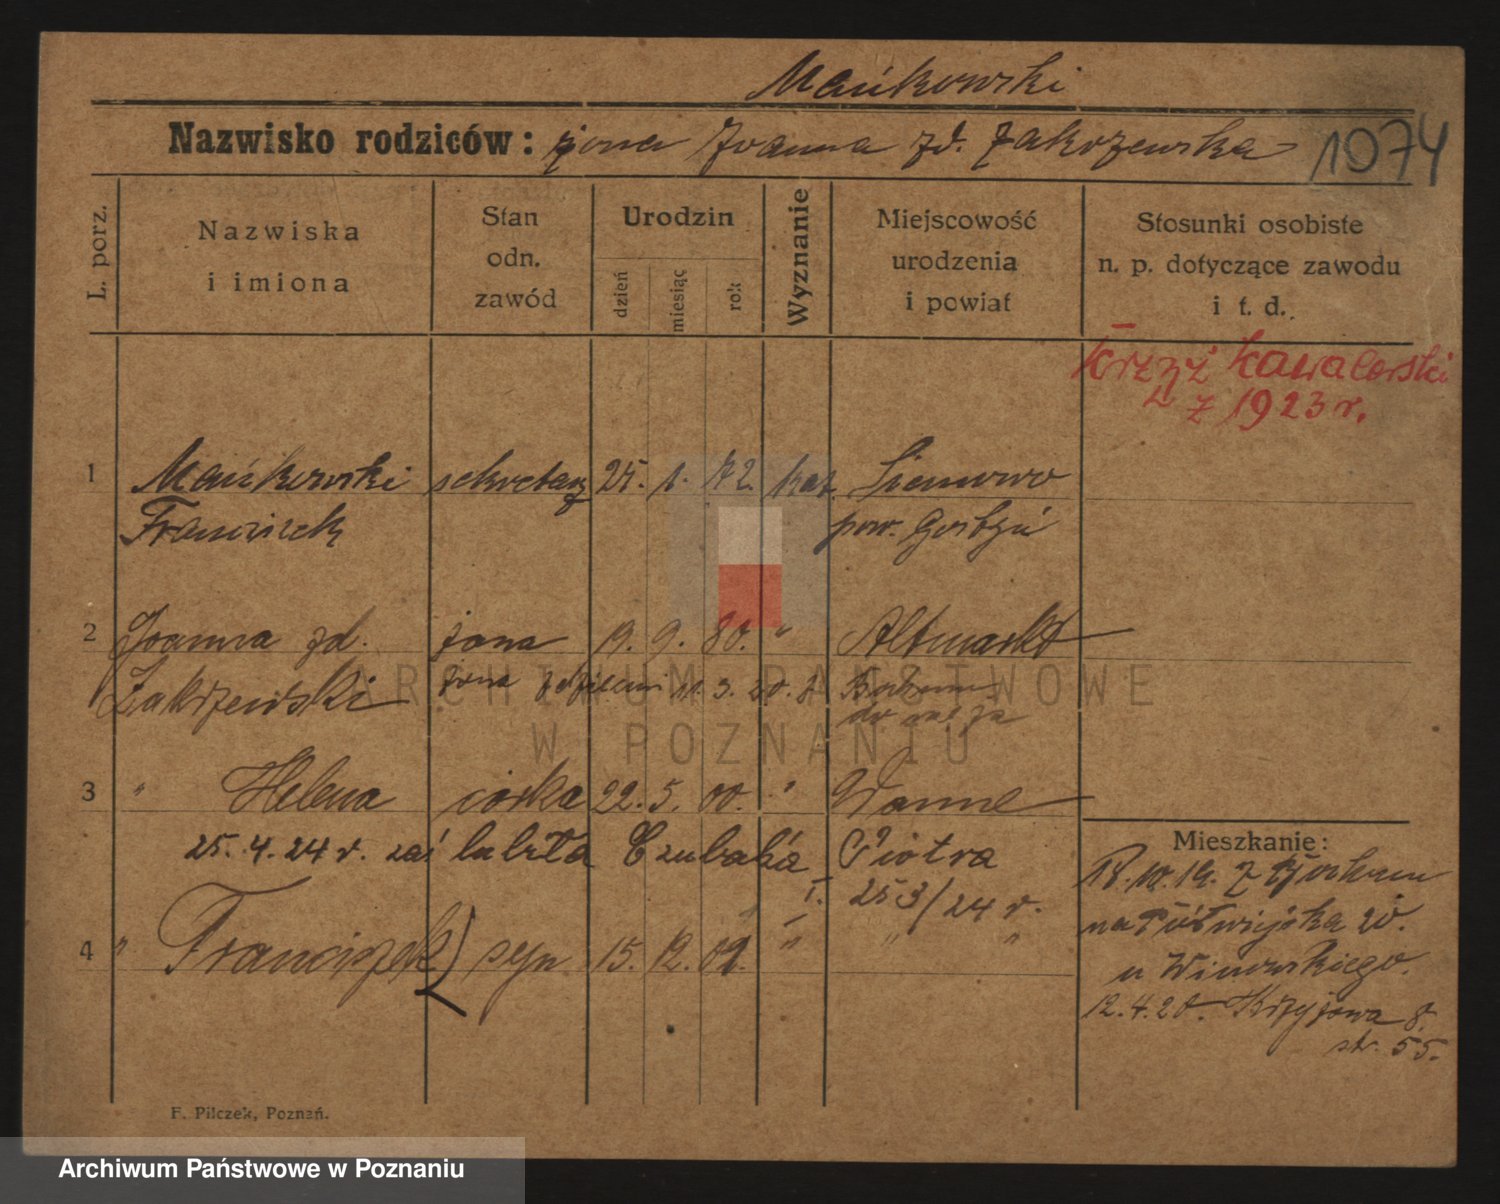 Mańkowski
Nazwisko rodziców: żona Joanna zd. Zakrzewska 1074
L. porz.
Nazwiska i imiona
Stan odn. zawód
Urodzin
dzień miesiąc rok
Wyznanie
Miejscowość urodzenia i powiat
Stosunki osobiste n. p. dotyczące zawodu i t. d.
krzyż kawalerski
z 1923 r.
1 Mańkowski sekretarz 25. 1. 72. kat Siemowo
Franciszek pow. Gostyń
2 Joanna zd. żona 19. 9. 80. " Altmarkt
Zakrzewski żona z dziećmi 11. 3. 20. z Bochum
do męża
3 " Helena córka 22. 5. 00. " Wanne
25. 4. 24 r. zaślubiła Czubaka Piotra
I. 253/24 r.
4 " Franciszek syn 15. 12. 02. " " "
Mieszkanie:
18. 10. 19. z Bochum
na Półwiejska 20.
u Winowskiego.
12. 4. 20. Krzyżowa 8.
str. 55.
F. Pilczek, Poznań.
ARCHIWUM PAŃSTWOWE
W POZNANIU
Archiwum Państwowe w Poznaniu